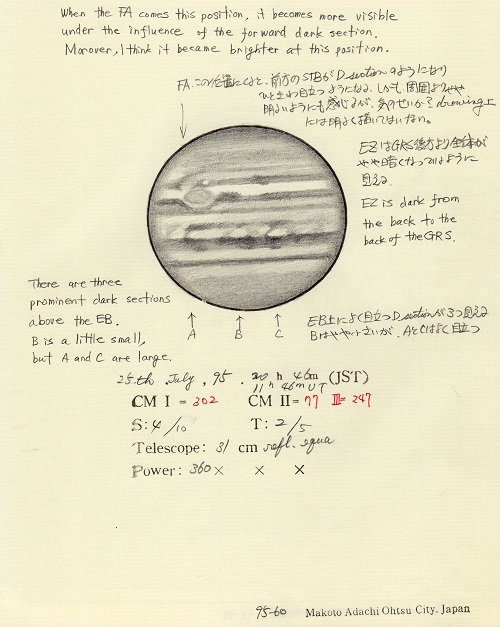 When the FA comes this position, it becomes more visible
under the influence of the forward dark section.
Morover, I think it became brighter at this position.
FA. この位置にくると、前方のSTBがD sectionのようになり
ひときわ目立つようになる。しかも、周囲よりやや
明るいようにも感じるが、気のせいか? drawing上
には明るく描いてはいない。
EZはGRS後方より全体が
やや暗くなっているように
見える
EZ is dark from
the back to the
back of the GRS.
There are three
prominent dark sections
above the EB.
B is a little small,
but A and C are large.
A B C
EB上によく目立つD sectionが3つ見える
Bはやや小さいが、AとCはよく目立つ
25th. July, 95. 20 h 46m (JST)
11h 46m UT
CM I = 302 CM II= 77 III= 247
S: 4/10 T: 2/5
Telescope: 31 cm refl. equa
Power: 360× × ×
95-60 Makoto Adachi Ohtsu City. Japan